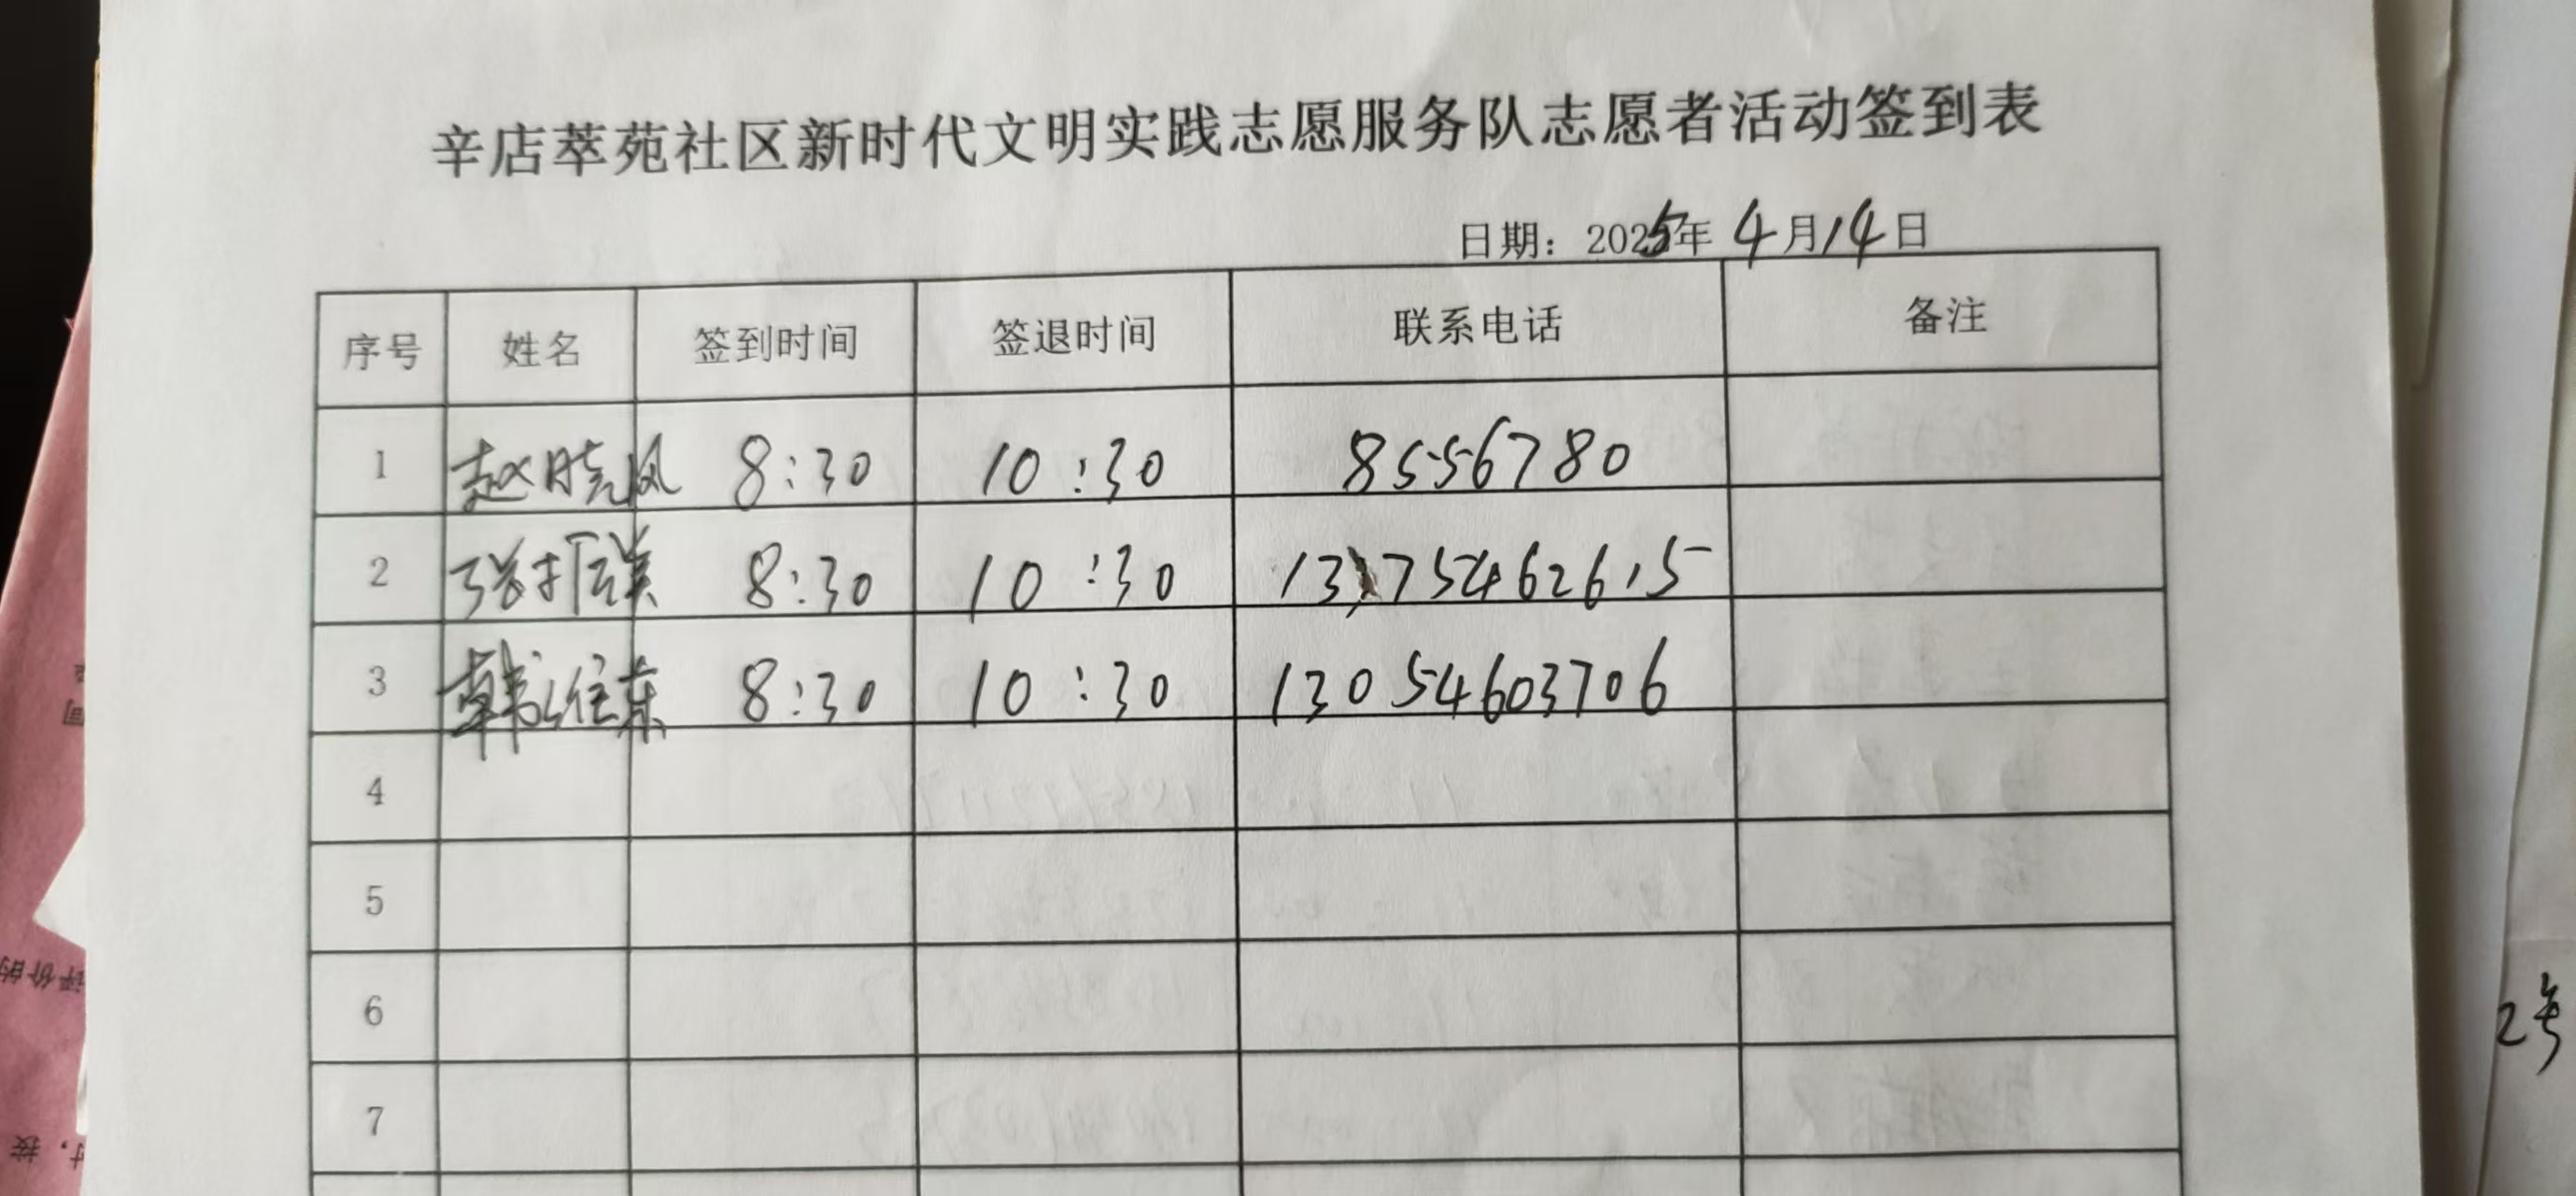 辛店萃苑社区新时代文明实践志愿服务队志愿者活动签到表
日期：2025年4月14日
序号 姓名 签到时间 签退时间 联系电话 备注
1 赵晓风 8:30 10:30 8556780
2 张振美 8:30 10:30 13175462615
3 韩维东 8:30 10:30 13054603706
4
5
6
7
评价的
2号